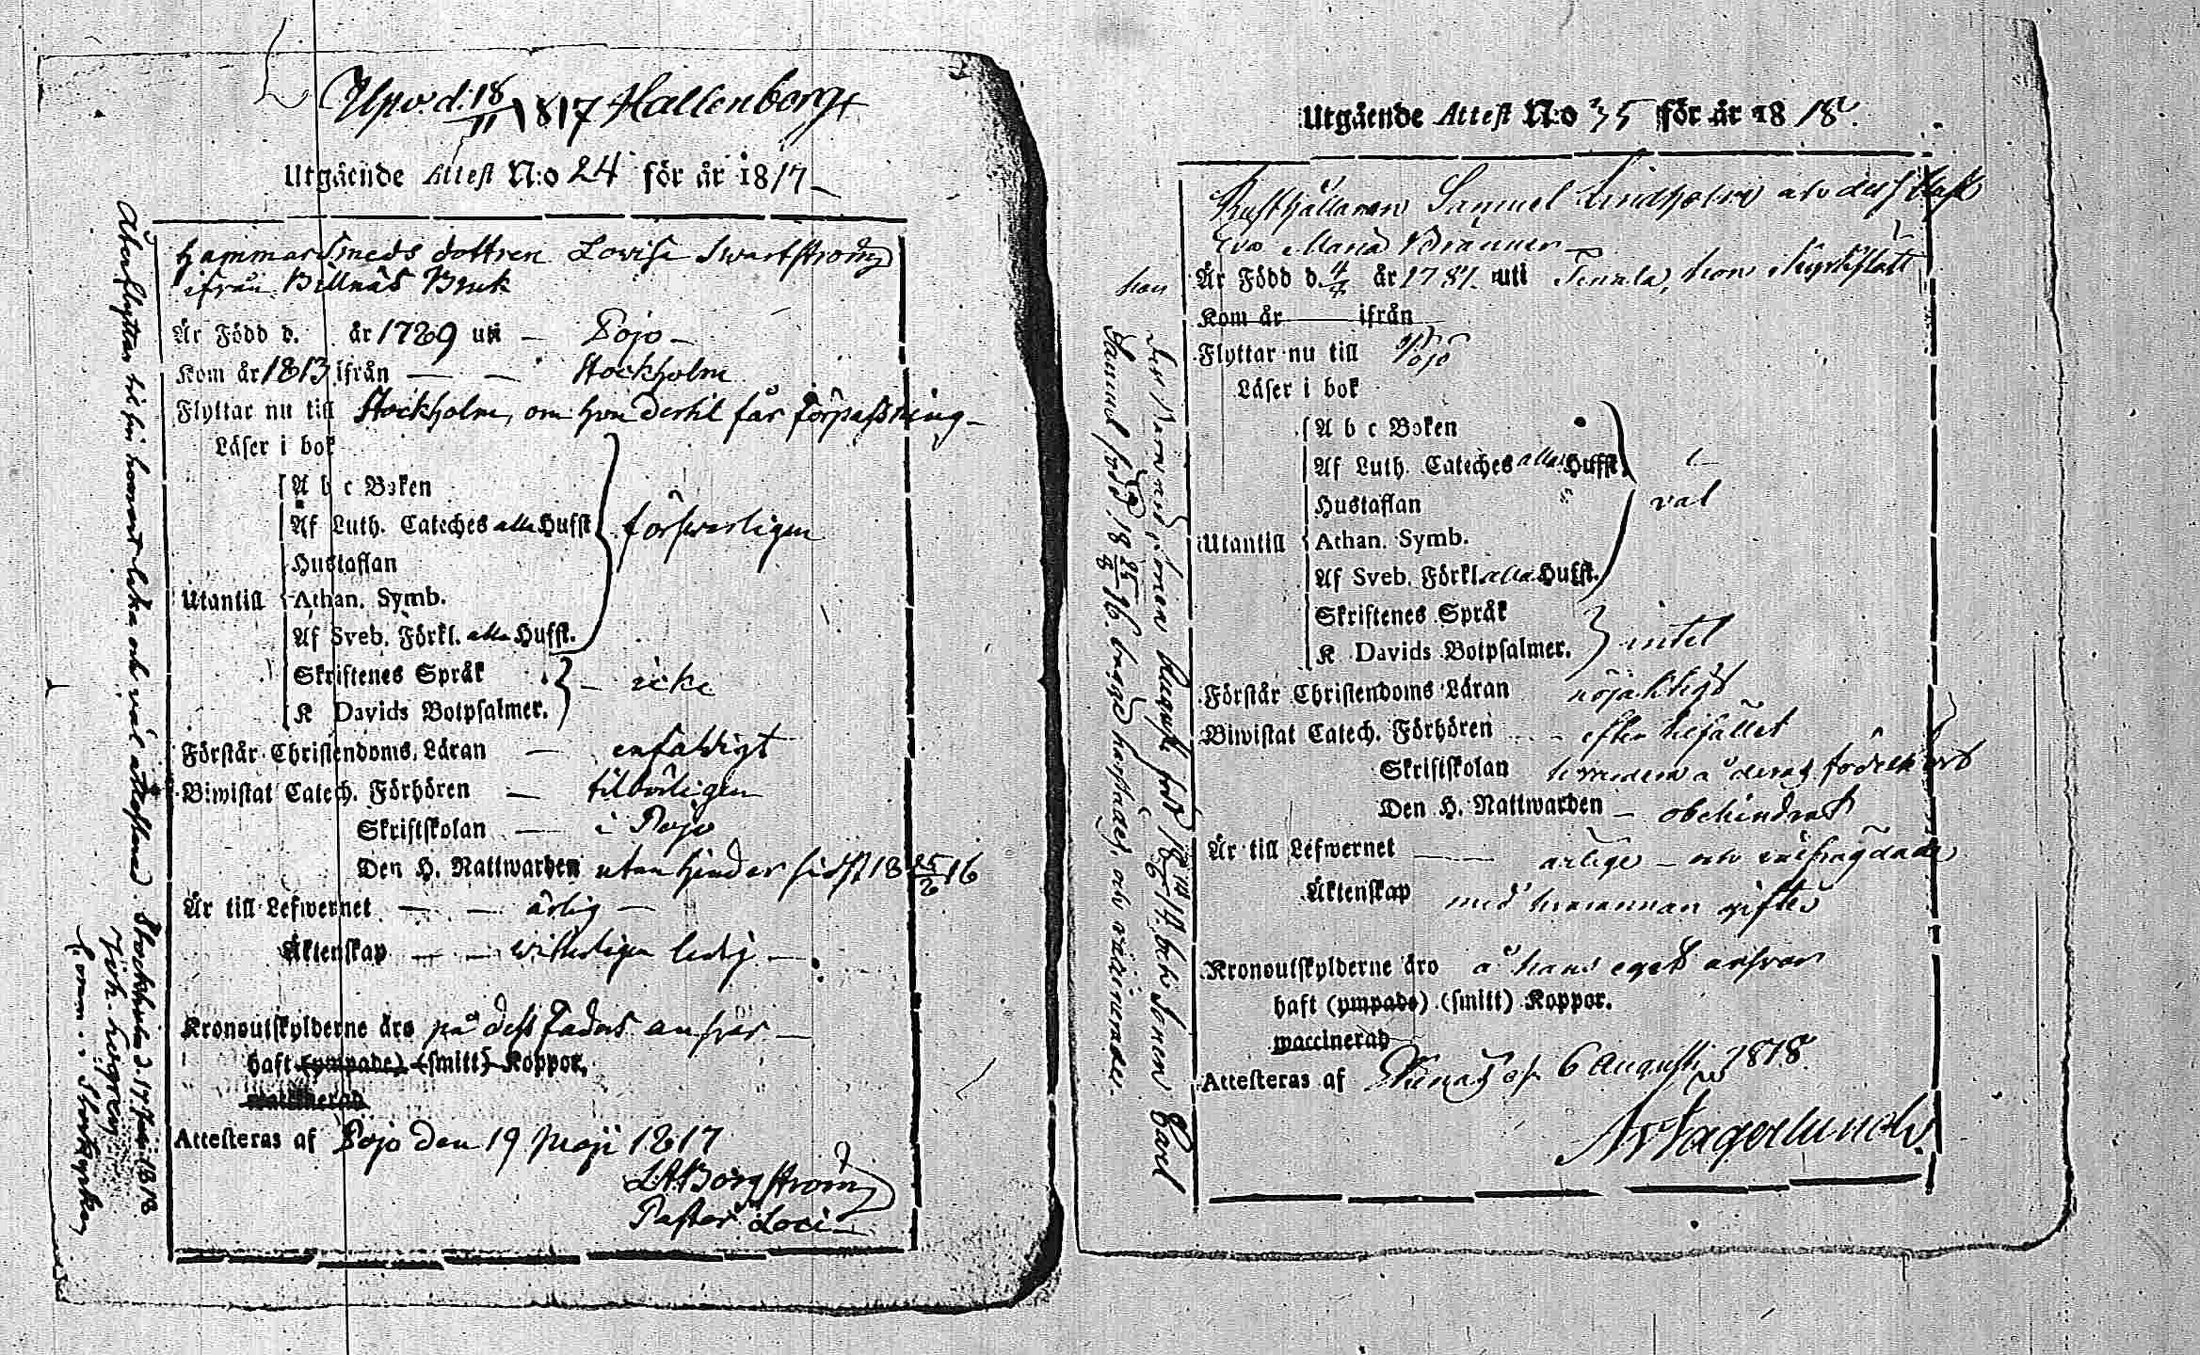 Upv. d. 18/11 1817 Hallenberg
Utgående Attest N:o 24 för år 1817
Hammarsmeds dottren Lovisa Swartström
ifrån Billnäs Bruk
Är Född d. år 1789 uti — Pojo —
Kom år 1813 ifrån — — Stockholm
Flyttar nu till Stockholm, om hon dertil får förpassning —
Läser i bok
A b c Boken
Af Luth. Cateches alla Hufst.
Hustaflan
Utantill Athan. Symb.
Af Sveb. Förkl. alla Hufst.
försvarligen
Skriftenes Språk
K Davids Botpsalmer.
— icke
Förstår Christendoms Läran — enfaldigt
Biwistat Catech. Förhören — tilbörligen
Skriftskolan — i Pojo
Den H. Nattwarden utan hinder sidst 18 25/6 16
Är till Lefwernet — — ärlig —
Äktenskap — — witterligen ledig —
Kronoutskylderne äro på dess Faders ansvar —
haft (ympade) (smitt) Koppor.
waccinerad
Attesteras af Pojo den 19 Maji 1817
Borgström
Pastor Loci
Åberflyttar til sin hemort lika och väl
Stockholm d. 17 1818
Utgående Attest N:o 35 för år 1818
Rusthållaren Samuel Lindholm och dess
Eva Maria Branner
Är Född d. år 1781 uti Tenala, hon Kyrkslätt
Kom år — ifrån
Flyttar nu till Pojo
Läser i bok
A b c Boken
Af Luth. Cateches alla Hufst.
Hustaflan
Utantill Athan. Symb.
Af Sveb. Förkl. alla Hufst.
väl
Skriftenes Språk
K Davids Botpsalmer.
intet
Förstår Christendoms Läran nöjaktigt
Biwistat Catech. Förhören — efter tilfället
Skriftskolan
Den H. Nattwarden — obehindrat
Är till Lefwernet — ärlige — och
Äktenskap med hvarannan gifte
Kronoutskylderne äro å hans eget ansvar
haft (ympade) (smitt) Koppor.
waccinerad
Attesteras af 6 Augusti 1818
Fagerlund
han
sonen August född sonen Carl
Samuel född 18 25/8 16. begge och vaccinerade.